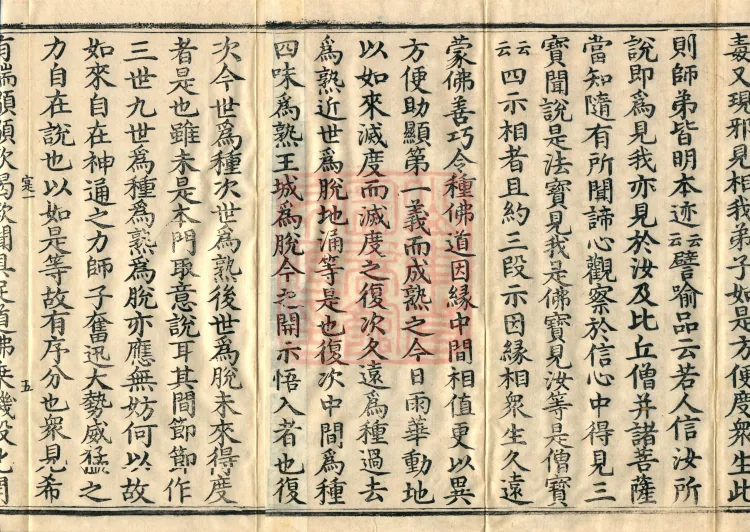 毒又現邪見相我弟子如是方便度衆生此
則師弟皆明本迹云云譬喻品云若人信汝所
說即爲見我亦見於汝及比丘僧并諸菩薩
當知隨有所聞諦心觀察於信心中得見三
寶聞說是法寶見我是佛寶見汝等是僧寶
云云四示相者且約三段示因緣相衆生久遠
蒙佛善巧令種佛道因緣中間相值更以異
方便助顯第一義而成熟之今日雨華動地
以如來滅度而滅度之復次久遠爲種過去
爲熟近世爲脫地涌等是也復次中間爲種
四味爲熟王城爲脫今之開示悟入者也復
次今世爲種次世爲熟後世爲脫未來得度
者是也雖未是本門取意說耳其間節節作
三世九世爲種爲熟爲脫亦應無妨何以故
如來自在神通之力師子奮迅大勢威猛之
力自在說也以如是等故有序分也衆見希
寔一 五
有瑞顒顒欽渴欲聞具足道佛乘機設化開